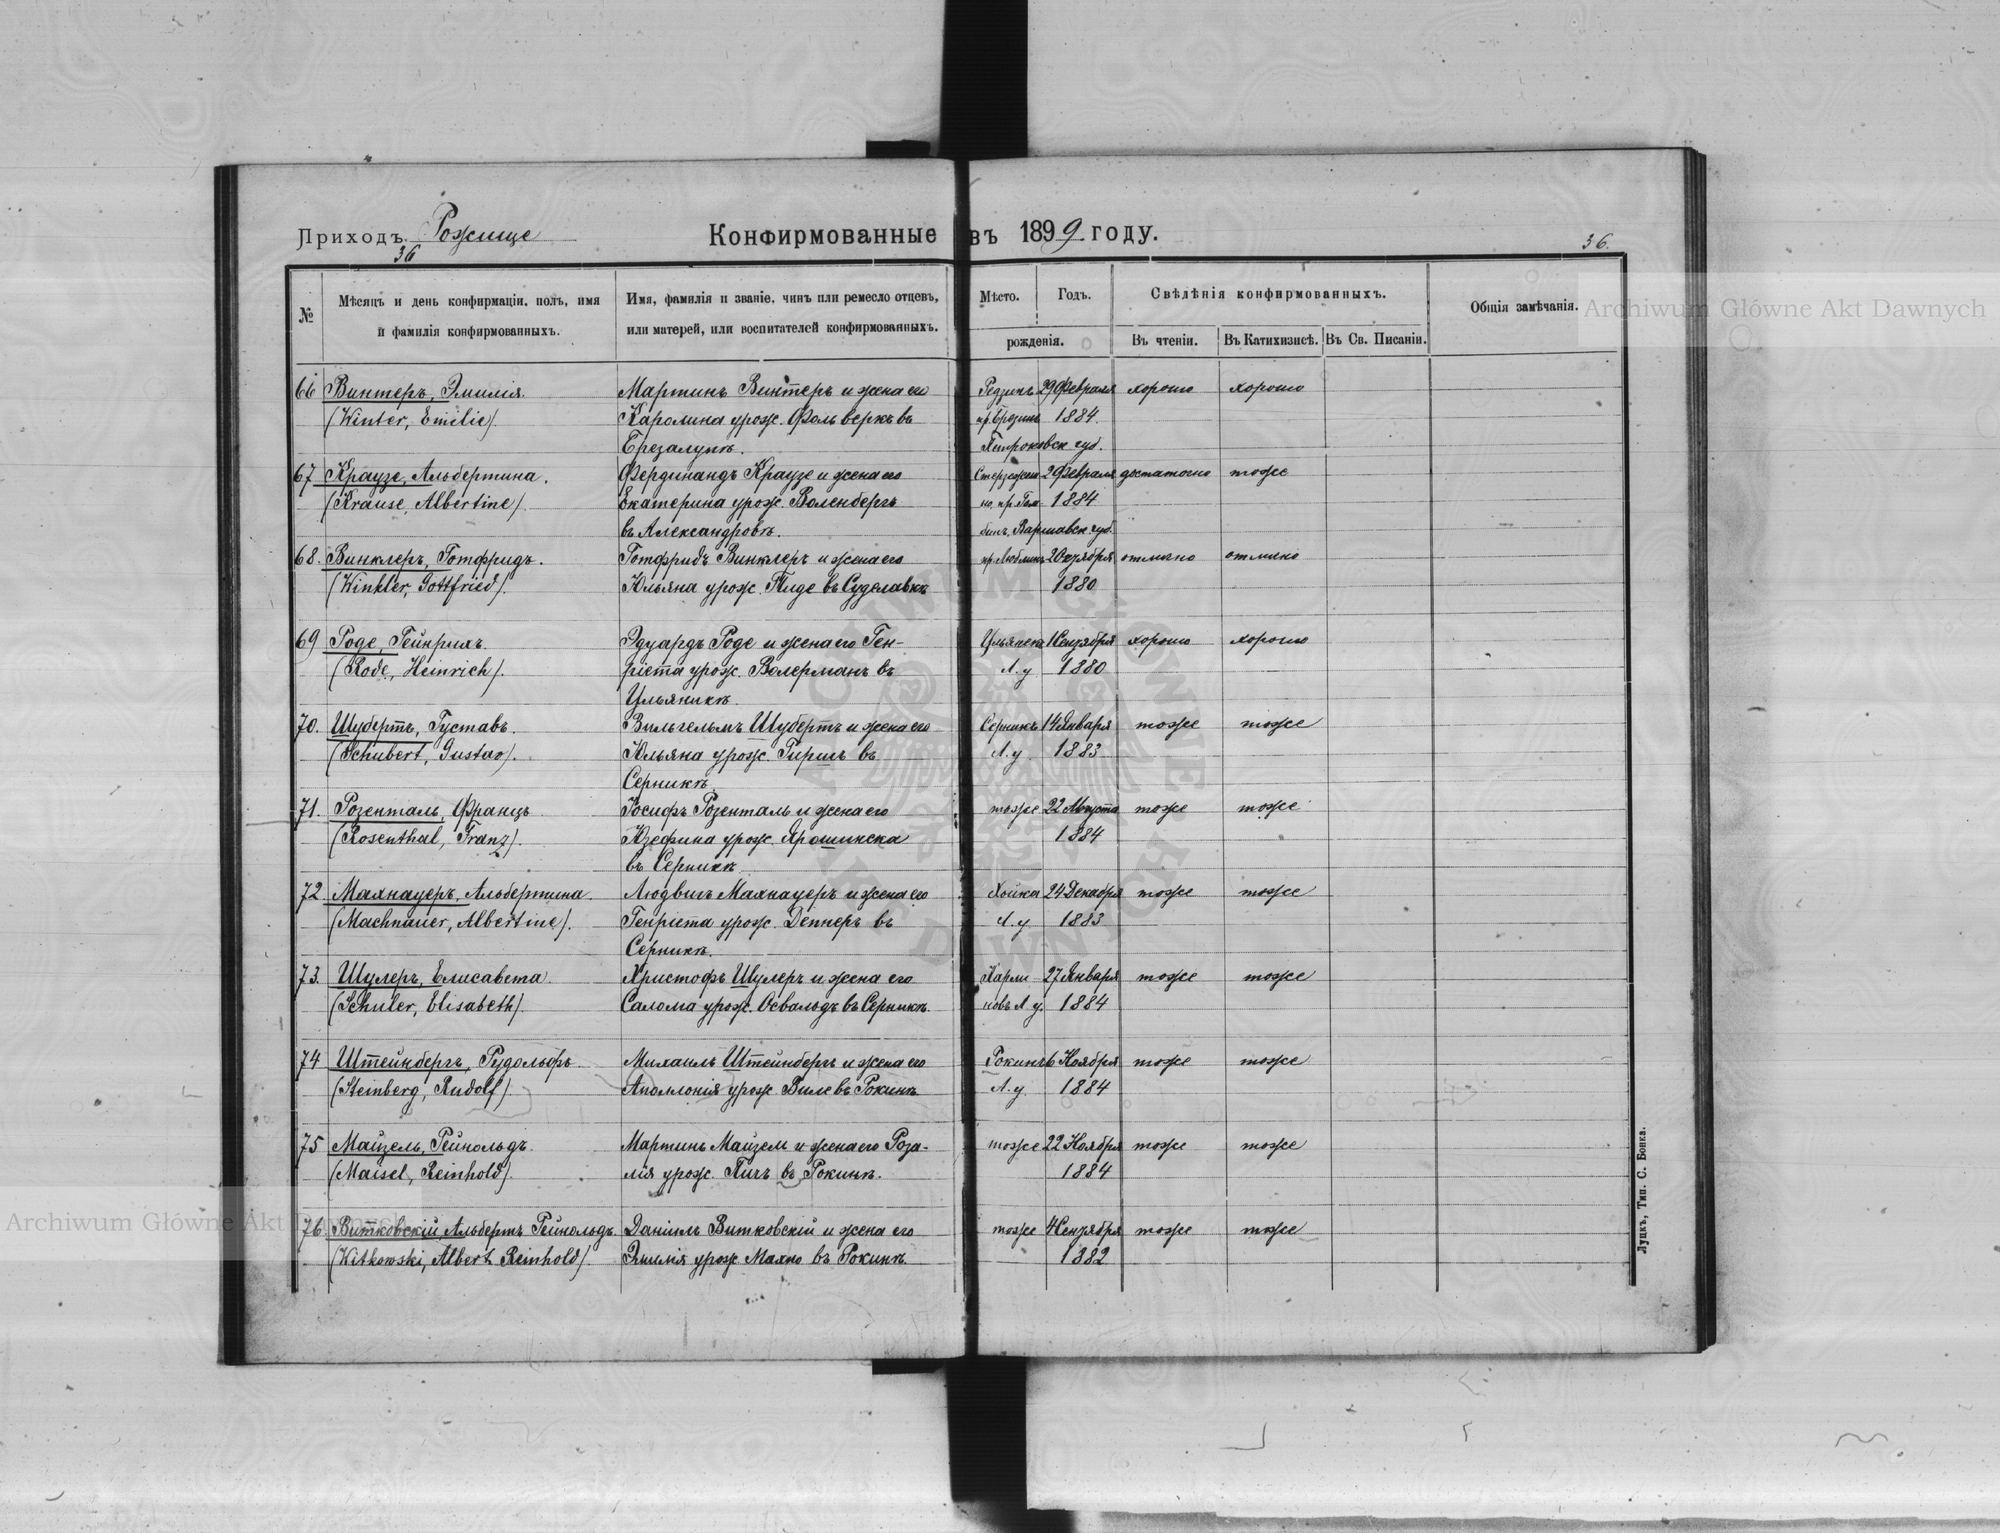 Приходъ Рожище
Конфирмованные въ 1899 году.
36
36.
№
Мѣсяцъ и день конфирмаціи, полъ, имя
и фамилія конфирмованныхъ.
Имя, фамилія и званіе, чинъ или ремесло отцевъ,
или матерей, или воспитателей конфирмованныхъ.
Мѣсто. Годъ.
рожденія.
Свѣдѣнія конфирмованныхъ.
Въ чтеніи. Въ Катихизисѣ. Въ Св. Писаніи.
Общія замѣчанія.
66 Винтеръ, Эмилія. Мартинъ Винтеръ и жена его 29 Февраля хорошо хорошо
(Winter, Emilie). Каролина урож. Фольверкъ въ 1884.
Петроковск. губ.
67 Краузе, Альбертина. Фердинандъ Краузе и жена его 2 Февраля достаточно тоже
(Krause, Albertine). Екатерина урож. Воленбергъ 1884
въ Александровкѣ. Варшавск. губ.
68. Винклеръ, Готфридъ. Готфридъ Винклеръ и жена его пр. Люблинъ отлично отлично
(Winkler, Gottfried). Юльяна урож. Тиде въ 1880
69 Роде, Гейнрихъ. Эдуардъ Роде и жена его Ген- хорошо хорошо
(Rode, Heinrich). ріета урож. Волерманъ въ Л. у 1880
Ульяникѣ.
70. Шубертъ, Густавъ. Вильгельмъ Шубертъ и жена его Серникъ 14 Января тоже тоже
(Schubert, Gustav). Юльяна урож. Гиршъ въ Л. у 1883
Серникѣ
71. Розенталь, Францъ Іосифъ Розенталь и жена его тоже 22 Августа тоже тоже
(Rosenthal, Franz). Юзефина урож. Ярошинска 1884
въ Серникѣ
72. Махнауеръ, Альбертина. Людвигъ Махнауеръ и жена его 24 Декабря тоже тоже
(Machnauer, Albertine). Генріета урож. Депнеръ въ 1883
Серникѣ.
73. Шулеръ, Елисавета. Христофъ Шулеръ и жена его Карли- 27 Января тоже тоже
(Schuler, Elisabeth). Салома урож. Освальдъ въ Серникѣ. новъ Л. у. 1884
74 Штейнбергъ, Рудольфъ Михаилъ Штейнбергъ и жена его Рокинь 6 Ноября тоже тоже
(Steinberg, Rudolf). Аполлонія урож. въ Рокинѣ Л. у. 1884
75 Майзель, Рейнольдъ. Мартинъ Майзель и жена его Роза- тоже 22 Ноября тоже тоже
(Maisel, Reinhold). лія урож. въ Рокинѣ. 1884
76. Витковскій, Альбертъ Рейнольдъ. Даніилъ Витковскій и жена его тоже тоже тоже
(Witkowski, Albert Reinhold). Эмилія урож. въ Рокинѣ 1882
Луцкъ, Тип. С. Бонка.
Archiwum Główne Akt Dawnych
Archiwum Główne Akt Dawnych
ARCHIWUM GŁÓWNE AKT DAWNYCH